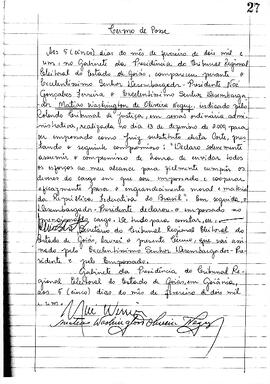 27
Termo de Posse
Aos 5 (cinco) dias do mês de fevereiro de dois mil e
um, no Gabinete da Presidência do Tribunal Regional
Eleitoral do Estado de Goiás, compareceu perante o
Excelentíssimo Senhor Desembargador-Presidente Noé
Gonçalves Ferreira o Excelentíssimo Senhor Desembarga-
dor Matias Washington de Oliveira Negry, indicado pelo
Colendo Tribunal de Justiça, em sessão ordinária admi-
nistrativa, realizada no dia 13 de dezembro de 2000, para
ser empossado como Juiz substituto desta Corte, pres-
tando o seguinte compromisso: "Declaro solenemente
assumir o compromisso de honra de envidar todos
os esforços ao meu alcance para fielmente cumprir os
deveres do cargo em que sou empossado e cooperar
eficazmente para o engrandecimento moral e material
da República Federativa do Brasil". Em seguida, o
Desembargador-Presidente declarou-o empossado no
cargo. De tudo para constar, eu,
Secretário do Tribunal Regional Eleitoral do
Estado de Goiás, lavrei o presente Termo, que vai assi-
nado pelo Excelentíssimo Senhor Desembargador-Pre-
sidente e pelo Empossado.
Gabinete da Presidência do Tribunal Re-
gional Eleitoral do Estado de Goiás, em Goiânia,
aos 5 (cinco) dias do mês de fevereiro de dois mil
e um.
Matias Washington Oliveira Negry